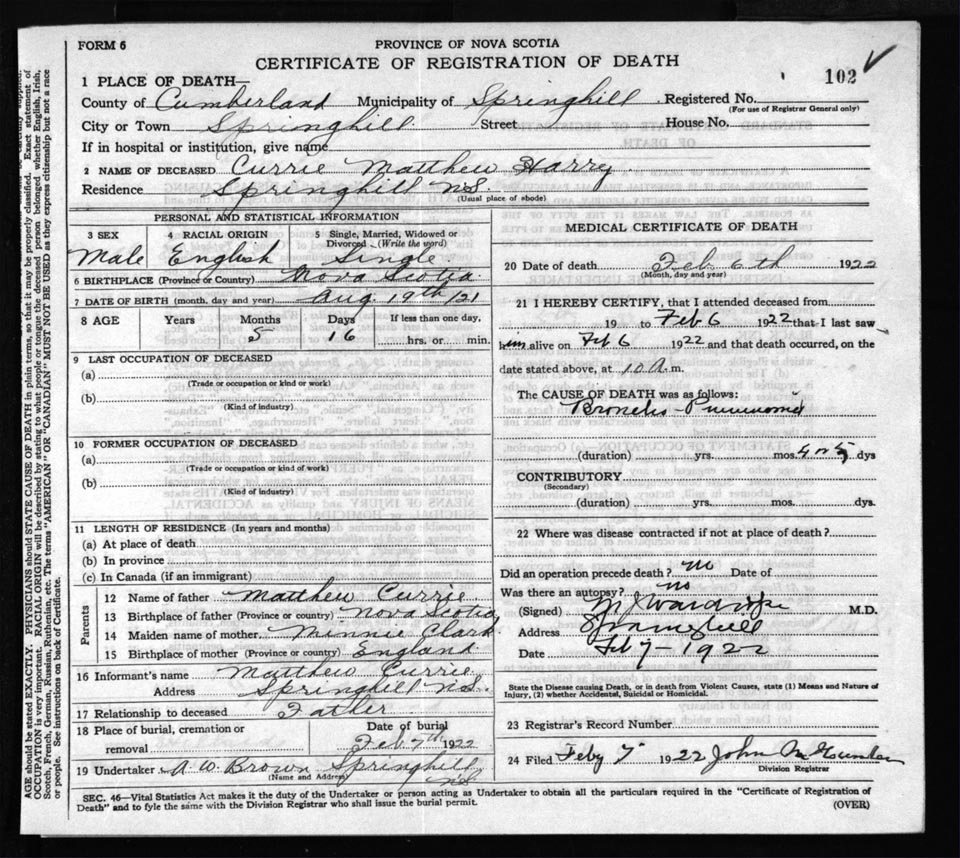 FORM 6
PROVINCE OF NOVA SCOTIA
CERTIFICATE OF REGISTRATION OF DEATH
102
1 PLACE OF DEATH—
County of Cumberland Municipality of Springhill Registered No.
(For use of Registrar General only)
City or Town Springhill Street House No.
If in hospital or institution, give name
2 NAME OF DECEASED Currie Matthew Harry
Residence Springhill N.S.
(Usual place of abode)
PERSONAL AND STATISTICAL INFORMATION
3 SEX 4 RACIAL ORIGIN 5 Single, Married, Widowed or Divorced (Write the word)
Male English Single
6 BIRTHPLACE (Province or Country) Nova Scotia
7 DATE OF BIRTH (month, day and year) Aug 19th/21
8 AGE Years Months Days If less than one day,
5 16 hrs. or min.
9 LAST OCCUPATION OF DECEASED
(a)
(Trade or occupation or kind or work)
(b)
(Kind of industry)
10 FORMER OCCUPATION OF DECEASED
(a)
(Trade or occupation or kind or work)
(b)
(Kind of industry)
11 LENGTH OF RESIDENCE (In years and months)
(a) At place of death
(b) In province
(c) In Canada (if an immigrant)
Parents
12 Name of father Matthew Currie
13 Birthplace of father (Province or country) Nova Scotia
14 Maiden name of mother Minnie Clark
15 Birthplace of mother (Province or country) England
16 Informant's name Matthew Currie
Address Springhill N.S.
17 Relationship to deceased Father
18 Place of burial, cremation or removal
Date of burial
Feb 7th 1922
19 Undertaker A. W. Brown Springhill N.S.
(Name and Address)
MEDICAL CERTIFICATE OF DEATH
20 Date of death Feb 6th 1922
(Month, day and year)
21 I HEREBY CERTIFY, that I attended deceased from
19 to Feb 6 1922 that I last saw
him alive on Feb 6 1922 and that death occurred, on the
date stated above, at 10 A.m.
The CAUSE OF DEATH was as follows:
Broncho-Pneumonia
(duration) yrs. mos. 4 or 5 dys
CONTRIBUTORY
(Secondary)
(duration) yrs. mos. dys.
22 Where was disease contracted if not at place of death?
Did an operation precede death? no Date of
Was there an autopsy? no
(Signed) M.D.
Address Springhill
Date Feb 7-1922
State the Disease causing Death, or in death from Violent Causes, state (1) Means and Nature of
Injury, (2) whether Accidental, Suicidal or Homicidal.
23 Registrar's Record Number
24 Filed Feby 7 1922 John
Division Registrar
SEC. 46—Vital Statistics Act makes it the duty of the Undertaker or person acting as Undertaker to obtain all the particulars required in the "Certificate of Registration of
Death" and to fyle the same with the Division Registrar who shall issue the burial permit.
(OVER)
AGE should be stated EXACTLY. PHYSICIANS should STATE CAUSE OF DEATH in plain terms, so that it may be properly classified. Exact statement of
OCCUPATION is very important. RACIAL ORIGIN will be described by stating to what people or tongue the deceased person belonged whether English, Irish,
Scotch, French, German, Russian, Ruthenian, etc. The terms "AMERICAN" OR "CANADIAN" MUST NOT BE USED as they express citizenship but not a race
or people. See instructions on back of Certificate.